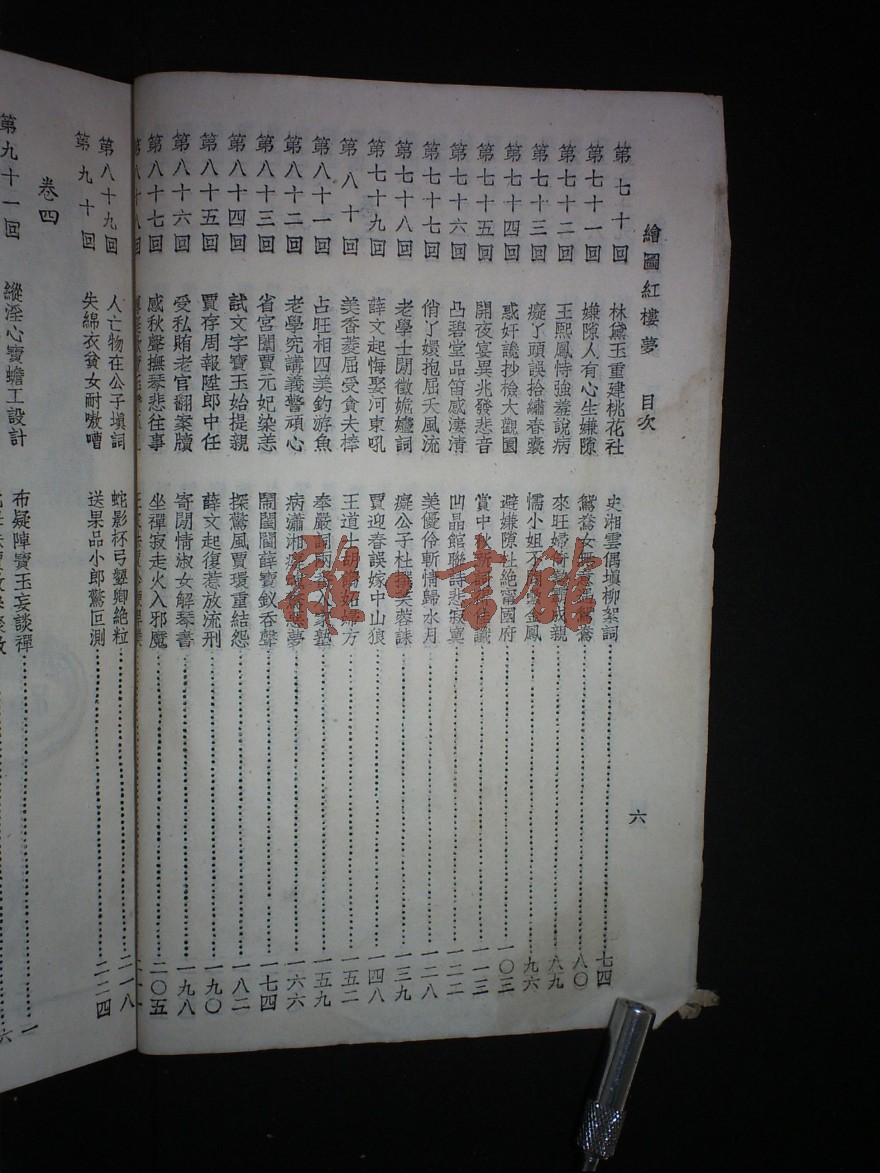 繪圖紅樓夢 目次 六
第七十回 林黛玉重建桃花社 史湘雲偶填柳絮詞 七四
第七十一回 嫌隙人有心生嫌隙 鴛鴦女無意 鴛鴦 八〇
第七十二回 王熙鳳恃強羞說病 來旺婦 親 八九
第七十三回 癡丫頭誤拾繡春囊 懦小姐不 金鳳 九六
第七十四回 惑奸讒抄檢大觀園 避嫌隙杜絕甯國府 一〇三
第七十五回 開夜宴異兆發悲音 賞中秋新 讖 一一三
第七十六回 凸碧堂品笛感淒清 凹晶館聯詩悲寂寞 一二二
第七十七回 俏丫嬛抱屈夭風流 美優伶斬情歸水月 一二八
第七十八回 老學士閒徵姽嫿詞 癡公子杜撰芙蓉誄 一三九
第七十九回 薛文起悔娶河東吼 賈迎春誤嫁中山狼 一四八
第八十回 美香菱屈受貪夫棒 王道士胡 方 一五二
第八十一回 占旺相四美釣游魚 奉嚴詞兩 家塾 一五九
第八十二回 老學究講義警頑心 病瀟湘 夢 一六六
第八十三回 省宮闈賈元妃染恙 鬧閨閫薛寶釵吞聲 一七四
第八十四回 試文字寶玉始提親 探驚風賈環重結怨 一八二
第八十五回 賈存周報陞郎中任 薛文起復惹放流刑 一九〇
第八十六回 愛私賄老官翻案牘 寄閒情淑女解琴書 一九八
第八十七回 感秋聲撫琴悲往事 坐禪寂走火入邪魔 二〇五
第八十八回
第八十九回 人亡物在公子填詞 蛇影杯弓顰卿絕粒 二一八
第九十回 失綿衣貧女耐嗷嘈 送果品小郎驚叵測 二二四
卷四
第九十一回 縱淫心寶蟾工設計 布疑陣寶玉妄談禪 一
六
雅·書館